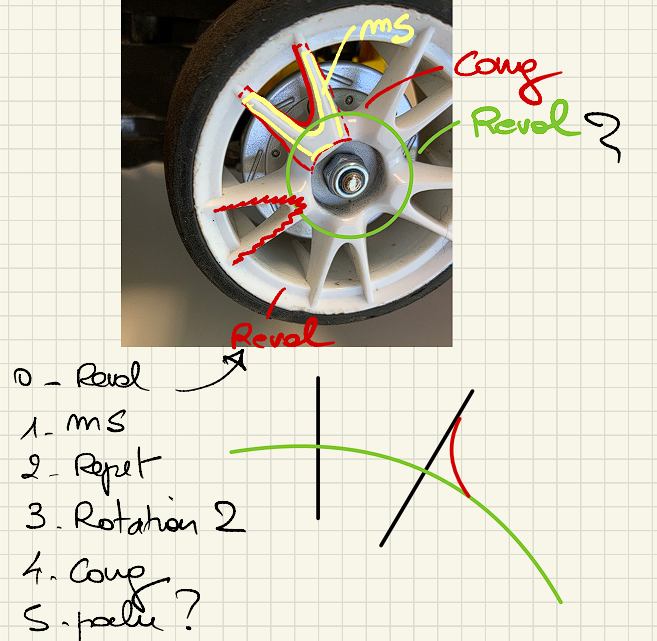 ms
Cong
Revol ?
Revol
0 - Revol
1. ms
2. Repet
3. Rotation 2
4. Cong
5. ?